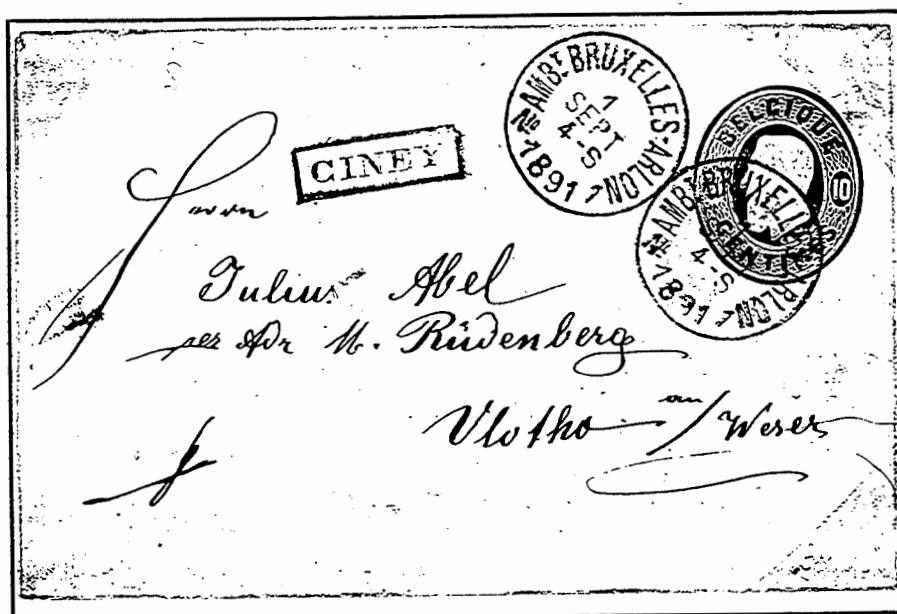 AMBT BRUXELLES-ARLON
1
SEPT
4-S
Nº 1891 1
BELGIQUE
10
CENTIMES
CINEY
AMBT BRUXELLES-ARLON
4-S
Nº 1891 1
Herrn
Julius Abel
per Adr M. Rüdenberg
Vlotho an/Weser